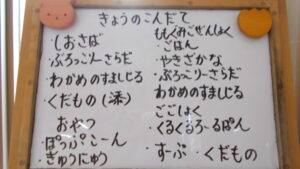 きょうのこんだて
・しおさば
・ぶろっこりーさらだ
・わかめのすましじる
・くだもの(添)
おやつ
・ぽっぷこーん
・ぎゅうにゅう
ももぐみごぜんしょく
・ごはん
・やきざかな
・ぶろっこりーさらだ
・わかめのすましじる
ごごしょく
・くるくるろーるぱん
・すーぷ ・くだもの